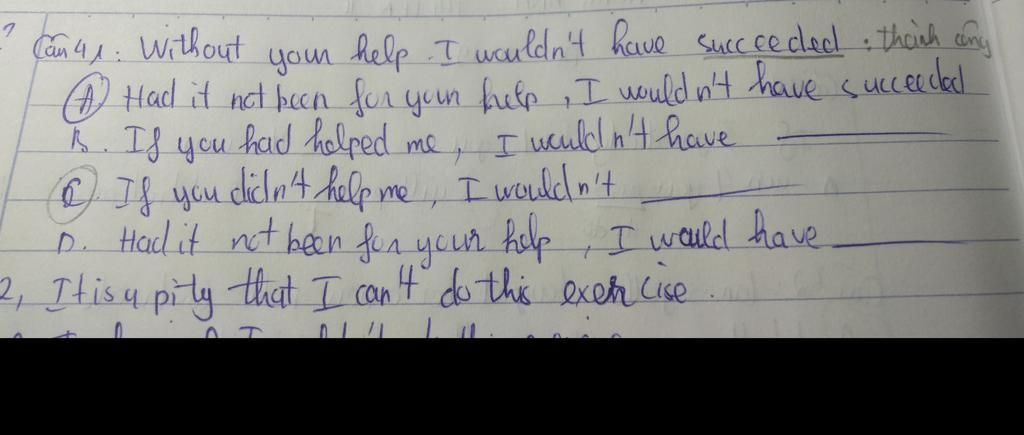 Câu 41: Without your help. I wouldn't have succeeded : thành công
A Had it not been for your help, I wouldn't have succeeded
B. If you had helped me, I wouldn't have
C. If you didn't help me, I wouldn't
D. Had it not been for your help, I would have
2, It is a pity that I can't do this exercise.